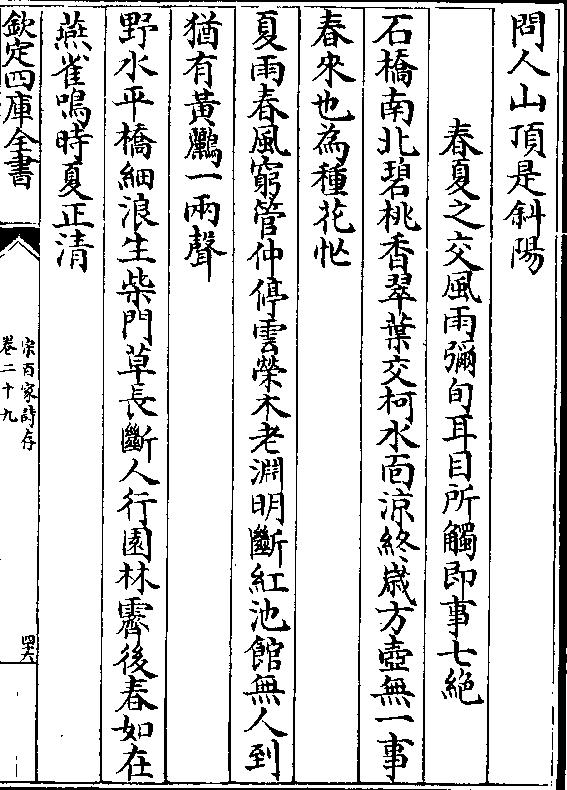 問人山頂是斜陽
春夏之交風雨彌旬耳目所觸即事七絶
石橋南北碧桃香翠葉交柯水面涼終歲方壺無一事
春來也為種花忙
夏雨春風窮管仲停雲榮木老淵明斷紅池館無人到
猶有黃鸝一兩聲
野水平橋細浪生柴門草長斷人行園林霽後春如在
燕雀鳴時夏正清
欽定四庫全書
宋百家詩存
卷二十九
四六